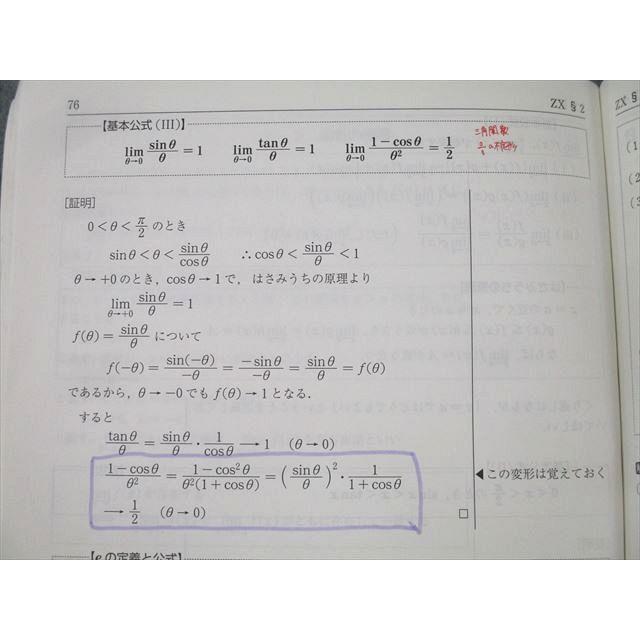 76
ZX §2
ZX §
【基本公式(III)】
lim_{θ→0} sinθ/θ = 1  lim_{θ→0} tanθ/θ = 1  lim_{θ→0} (1−cosθ)/θ² = 1/2
三角関数
[証明]
0<θ<π/2 のとき
sinθ<θ<sinθ/cosθ  ∴cosθ<sinθ/θ<1
θ→+0のとき，cosθ→1で，はさみうちの原理より
lim_{θ→+0} sinθ/θ = 1
f(θ)=sinθ/θ について
f(−θ)=sin(−θ)/−θ=−sinθ/−θ=sinθ/θ=f(θ)
であるから，θ→−0でも f(θ)→1となる．
すると
tanθ/θ=sinθ/θ・1/cosθ→1 (θ→0)
(1−cosθ)/θ²=(1−cos²θ)/θ²(1+cosθ)=(sinθ/θ)²・1/(1+cosθ)
→1/2 (θ→0)
□
◀この変形は覚えておく
【eの定義と公式】